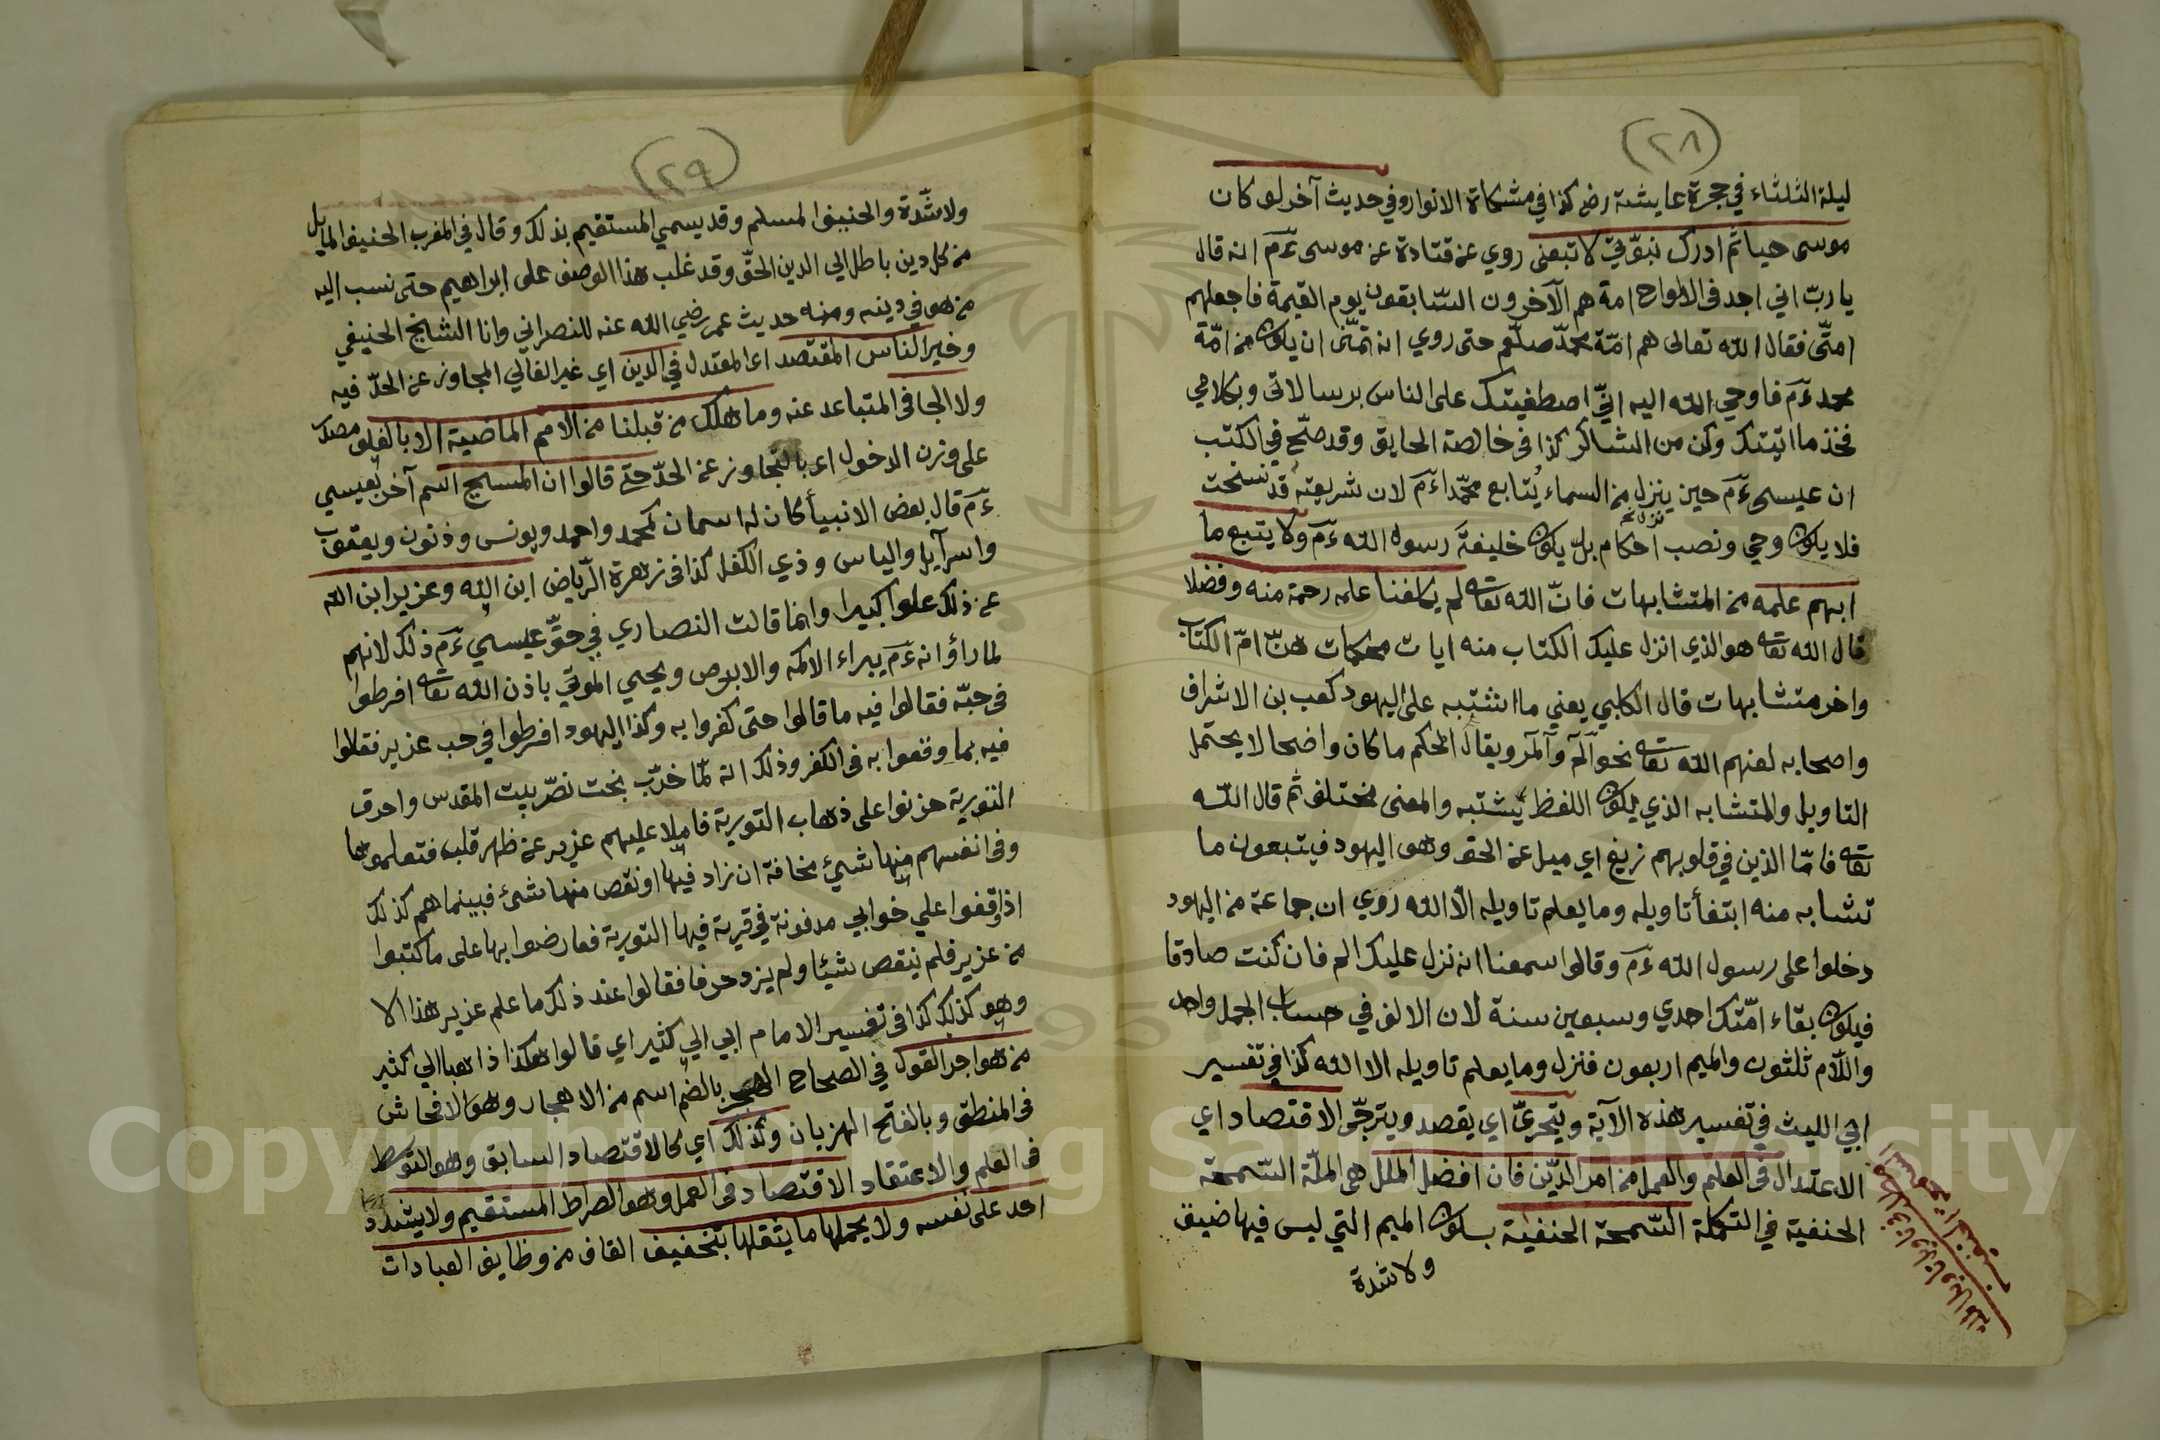 (٢٨)
ليلة الثلثاء في حجرة عايشة رضه كذا في مشكاة الانوار وفي حديث آخر لو كان
موسى حيا ثم ادرك نبوّتي لاتبعنى روي عن قتادة عن موسى ءم انه قال
يا ربّ اني اجد في الالواح امة هم الآخرون السّابقون يوم القيمة فاجعلهم
امتّى فقال الله تعالى هم امّة محمدّ صلّعم حتى روي انه تمنّى ان يكون من امّة
محمد ءم فاوحي الله اليه انّي اصطفيتك على الناس برسالاتى وبكلامي
فخذ ما اتيتك وكن من الشاكر كذا في خالصة الحايق وقد صحّ في الكتب
ان عيسى ءم حين ينزل من السماء يُتابع محمّدا ءم لان شريعته قد نسخت
فلا يكون وحي ونصب احكام بلّ يكون خليفة رسول الله ءم ولا يتبع ما
ابهم علمه من المتشابهات فانّ الله تعه لم يكلفنا علمه رحمة منه وفضلا
قال الله تعه هو الذي انزل عليك الكتاب منه ايات محكمات هنّ امّ الكتاب
واخر متشابهات قال الكلبي يعني ما اشتبه على اليهود كعب بن الاشراف
واصحابه لعنهم الله تعه نحو آلم وآلمر ويقال المحكم ما كان واضحا لا يحتمل
التاويل والمتشابه الذي يكون اللفظ يشتبه والمعنى مختلف ثم قال الله
تعه فامّا الذين في قلوبهم زيغ اي ميل عن الحق وهو اليهود فيتبعون ما
تشابه منه ابتغأ تاويله وما يعلم تاويله الا الله روي ان جماعة من اليهود
دخلوا على رسول الله ءم وقالوا سمعنا انه نزل عليك الم فان كنت صادقا
فيكون بقاء امّتك احدي وسبعين سنة لان الالف في حساب الجمل واحد
واللّام ثلثون والميم اربعون فنزل وما يعلم تاويله الا الله كذا في تفسير
ابي الليث في تفسير هذه الآية ويتحريّ اي يقصد ويترجّى الاقتصاد اي
الاعتدال في العلم والعمل من امر الدّين فان افضل الملل هى الملّة السّمحة
الحنفية في التكملة السّمحة الحنفية بسكون الميم التي ليس فيها ضيق
ولا شدة
(٢٩)
ولا شّدة والحنيف المسلم وقد يسمي المستقيم بذلك وقال في المغرب الحنيف المايل
من كل دين باطل الي الدين الحقّ وقد غلب هذا الوصف على ابراهيم حتى نسب اليه
من هو في دينه ومنه حديث عمر رضي الله عنه للنصراني وانا الشايخ الحنيفي
وخير الناس المقتصد اى المعتدل في الدين اي غير الغالي المجاوز عن الحدّ فيه
ولا الجافى المتباعد عنه وما هلك من قبلنا من الامم الماضية الا بالغلو مصدر
على وزن الدخول اى بالتجاوز عن الحدّ حتى قالوا ان المسيح اسم آخر لعيسي
ءم قال بعض الانبيأ كان له اسمان كمحمد واحمد ويونس وذنون ويعقوب
واسرآيل والياس وذي الكفل كذا في زهرة الرّياض ابن الله وعزير ابن الله
عن ذلك علوا كبيرا وانما قالت النصاري في حقّ عيسي ءم ذلك لانهم
لما رأوا نه ءم يبراء الاكمه والابرص ويحيي الموتي باذن الله تعه افرطوا
في حبّه فقالوا فيه ما قالوا حتى كفروا به وكذا اليهود افرطوا في حب عزير فقالوا
فيه بما وقعوا به في الكفر وذلك انه لمّا خرّب بخت نصّر بيت المقدس واحرق
التورية حزنوا على ذهاب التورية فاملا عليهم عزير عن ظهر قلب فتعلموها
وفي انفسهم منها شيئ مخافة ان زاد فيها او نقص منها شئ فبينما هم كذلك
اذ وقفوا علي خوابي مدفونة في قرية فيها التورية فعارضوا بها على ما كتبوا
من عزير فلم ينقص شيئا ولم يزد حرفا فقالوا عند ذلك ما علم عزير هذا الا
وهو كذلك كذا في تفسير الامام ابي الي كثير اي قالوا هكذا ذاهبا الي كثير
من هواجر القول في الصحاح الهجر بالضم اسم من الاهجار وهو الافحاش
في المنطق وبالفتح الهزيان وكذلك اي كالاقتصاد السابق وهو التوسّط
في العلم والاعتقاد الاقتصاد في العمل وهو الصراط المستقيم ولا يشدد
احد على نفسه ولا يحملها ما يثقلها بتخفيف القاف من وظايف العبادات